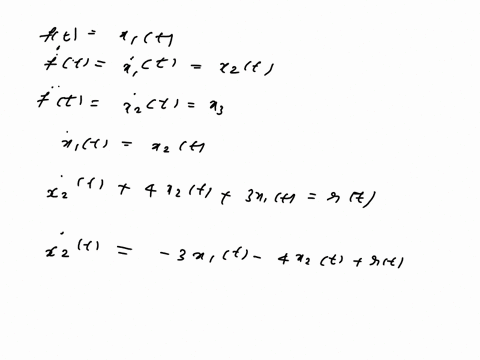 f(t) = x₁(t)
ḟ(t) = ẋ₁(t) = x₂(t)
f̈(t) = ẋ₂(t) = x₃
ẋ₁(t) = x₂(t)
ẋ₂(t) + 4x₂(t) + 3x₁(t) = r(t)
ẋ₂(t) = -3x₁(t) - 4x₂(t) + r(t)